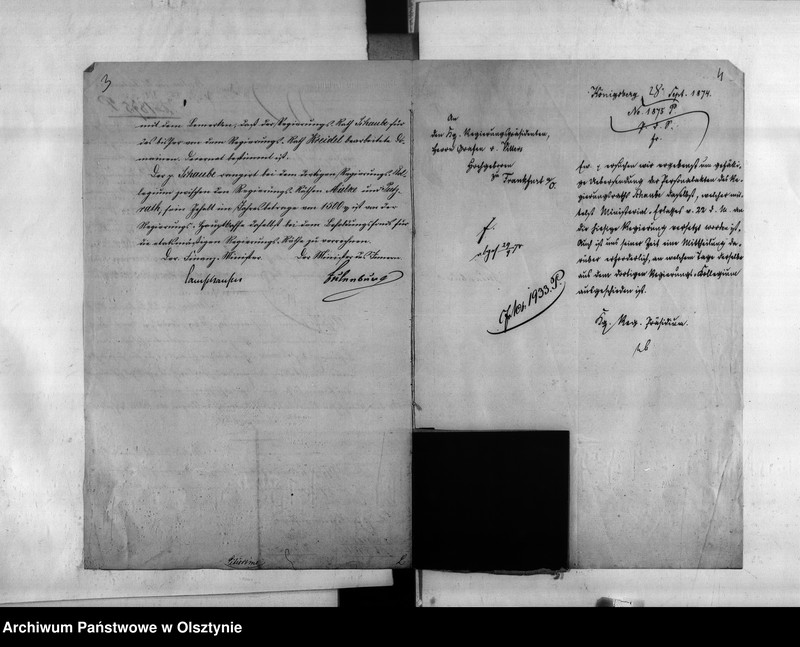 3
mit dem Bemerken, daß der Regierungs-Rath Schaube für
das bisher von dem Regierungs-Rath Heidel bearbeitete Do-
mainen-Decernat bestimmt ist.
Der p. Schaube rangirt bei dem dortigen Regierungs-Col-
legium zwischen den Regierungs-Räthen Müller und
rath, sein Gehalt im Jahresbetrage von 1500 ist an der
Regierungs-Hauptkasse daselbst bei dem Besoldungsfonds für
die etatsmäßigen Regierungs-Räthe zu verrechnen.
Der Finanz-Minister
Der Minister des Innern
Camphausen
Eulenburg
4
Königsberg 28. Sept. 1874.
No. 1878 P.
An
den Kg. Regierungs-Präsidenten,
Herrn Grafen v.
Hochgeboren
zu Frankfurt a/O.
Ew. p. ersuchen wir ergebenst um gefäl-
lige Uebersendung der Personalakten des Re-
gierungsraths Schaube daselbst, welcher mit-
telst Ministerial-Erlasses v. 22 d. M. an
die hiesige Regierung versetzt worden ist.
Auch ist uns seiner Zeit eine Mittheilung da-
rüber erforderlich, an welchem Tage derselbe
aus dem dortigen Regierungs-Kollegium
ausgeschieden ist.
Kg. Reg. Präsidium.
1933. P.
Archiwum Państwowe w Olsztynie